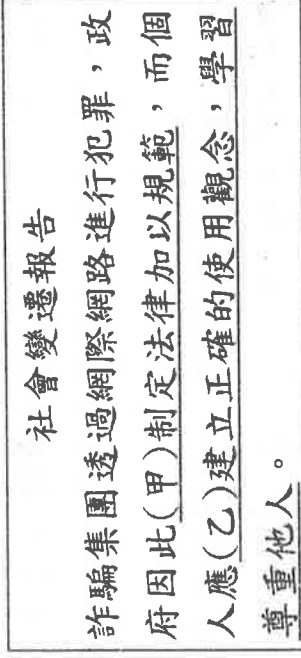 社會變遷報告
詐騙集團透過網際網路進行犯罪，政
府因此(甲)制定法律加以規範，而個
人應(乙)建立正確的使用觀念，學習
尊重他人。